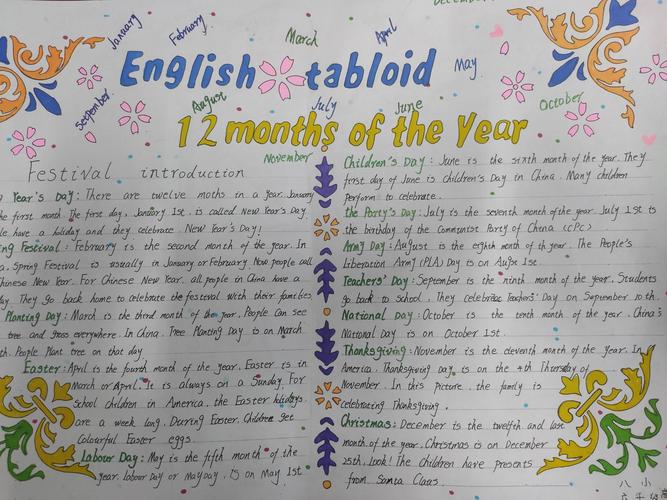 December
January
February
March
April
English tabloid
May
September
August
July
June
October
12 months of the Year
November
Festival introduction
Year's Day: There are twelve moths in a year. January
the first month. The first day, January 1st, is called New Year's Day.
have a holiday and they celebrate. New Year's Day!
Festival: February is the second month of the year. In
Spring Festival is usually in January or February. Now people call
Chinese New Year. For Chinese New Year, all people in China have a
They go back home to celebrate the festival with their families.
Planting Day: March is the third month of the year. People can see
tree and grass everywhere. In China, Tree Planting Day is on March
People Plant tree on that day.
Easter: April is the fourth month of the year. Easter is in
March or April. It is always on a Sunday. For
School children in America, the Easter holidays
are a week long. Durring Easter, Children get
Colourful Easter eggs.
Labour Day: May is the fifth month of the
year. labour Day or May Day, is on May 1st
Children's Day: June is the sixth month of the year. They
first day of June is children's Day in China. Many children
perform to celebrate.
the Party's Day: July is the seventh month of the year. July 1st is
the birthday of the Communist Party of China (CPC)
Army Day: August is the eighth month of th year. The People's
Liberation Army (PLA) Day is on 1st.
Teachers' Day: September is the ninth month of the year. Students
go back to school. They celebrate Teachers' Day on September 10th.
National Day: October is the tenth month of the year. China's
National Day is on October 1st.
Thanksgiving: November is the eleventh month of the year. In
America, Thanksgiving Day is on the 4th Thursday of
November. In this picture, the family is
celebrating Thanksgiving.
Christmas: December is the twelfth and last
month of the year. Christmas is on December
25th. Look! The children have presents
from Santa Claus.
八 小